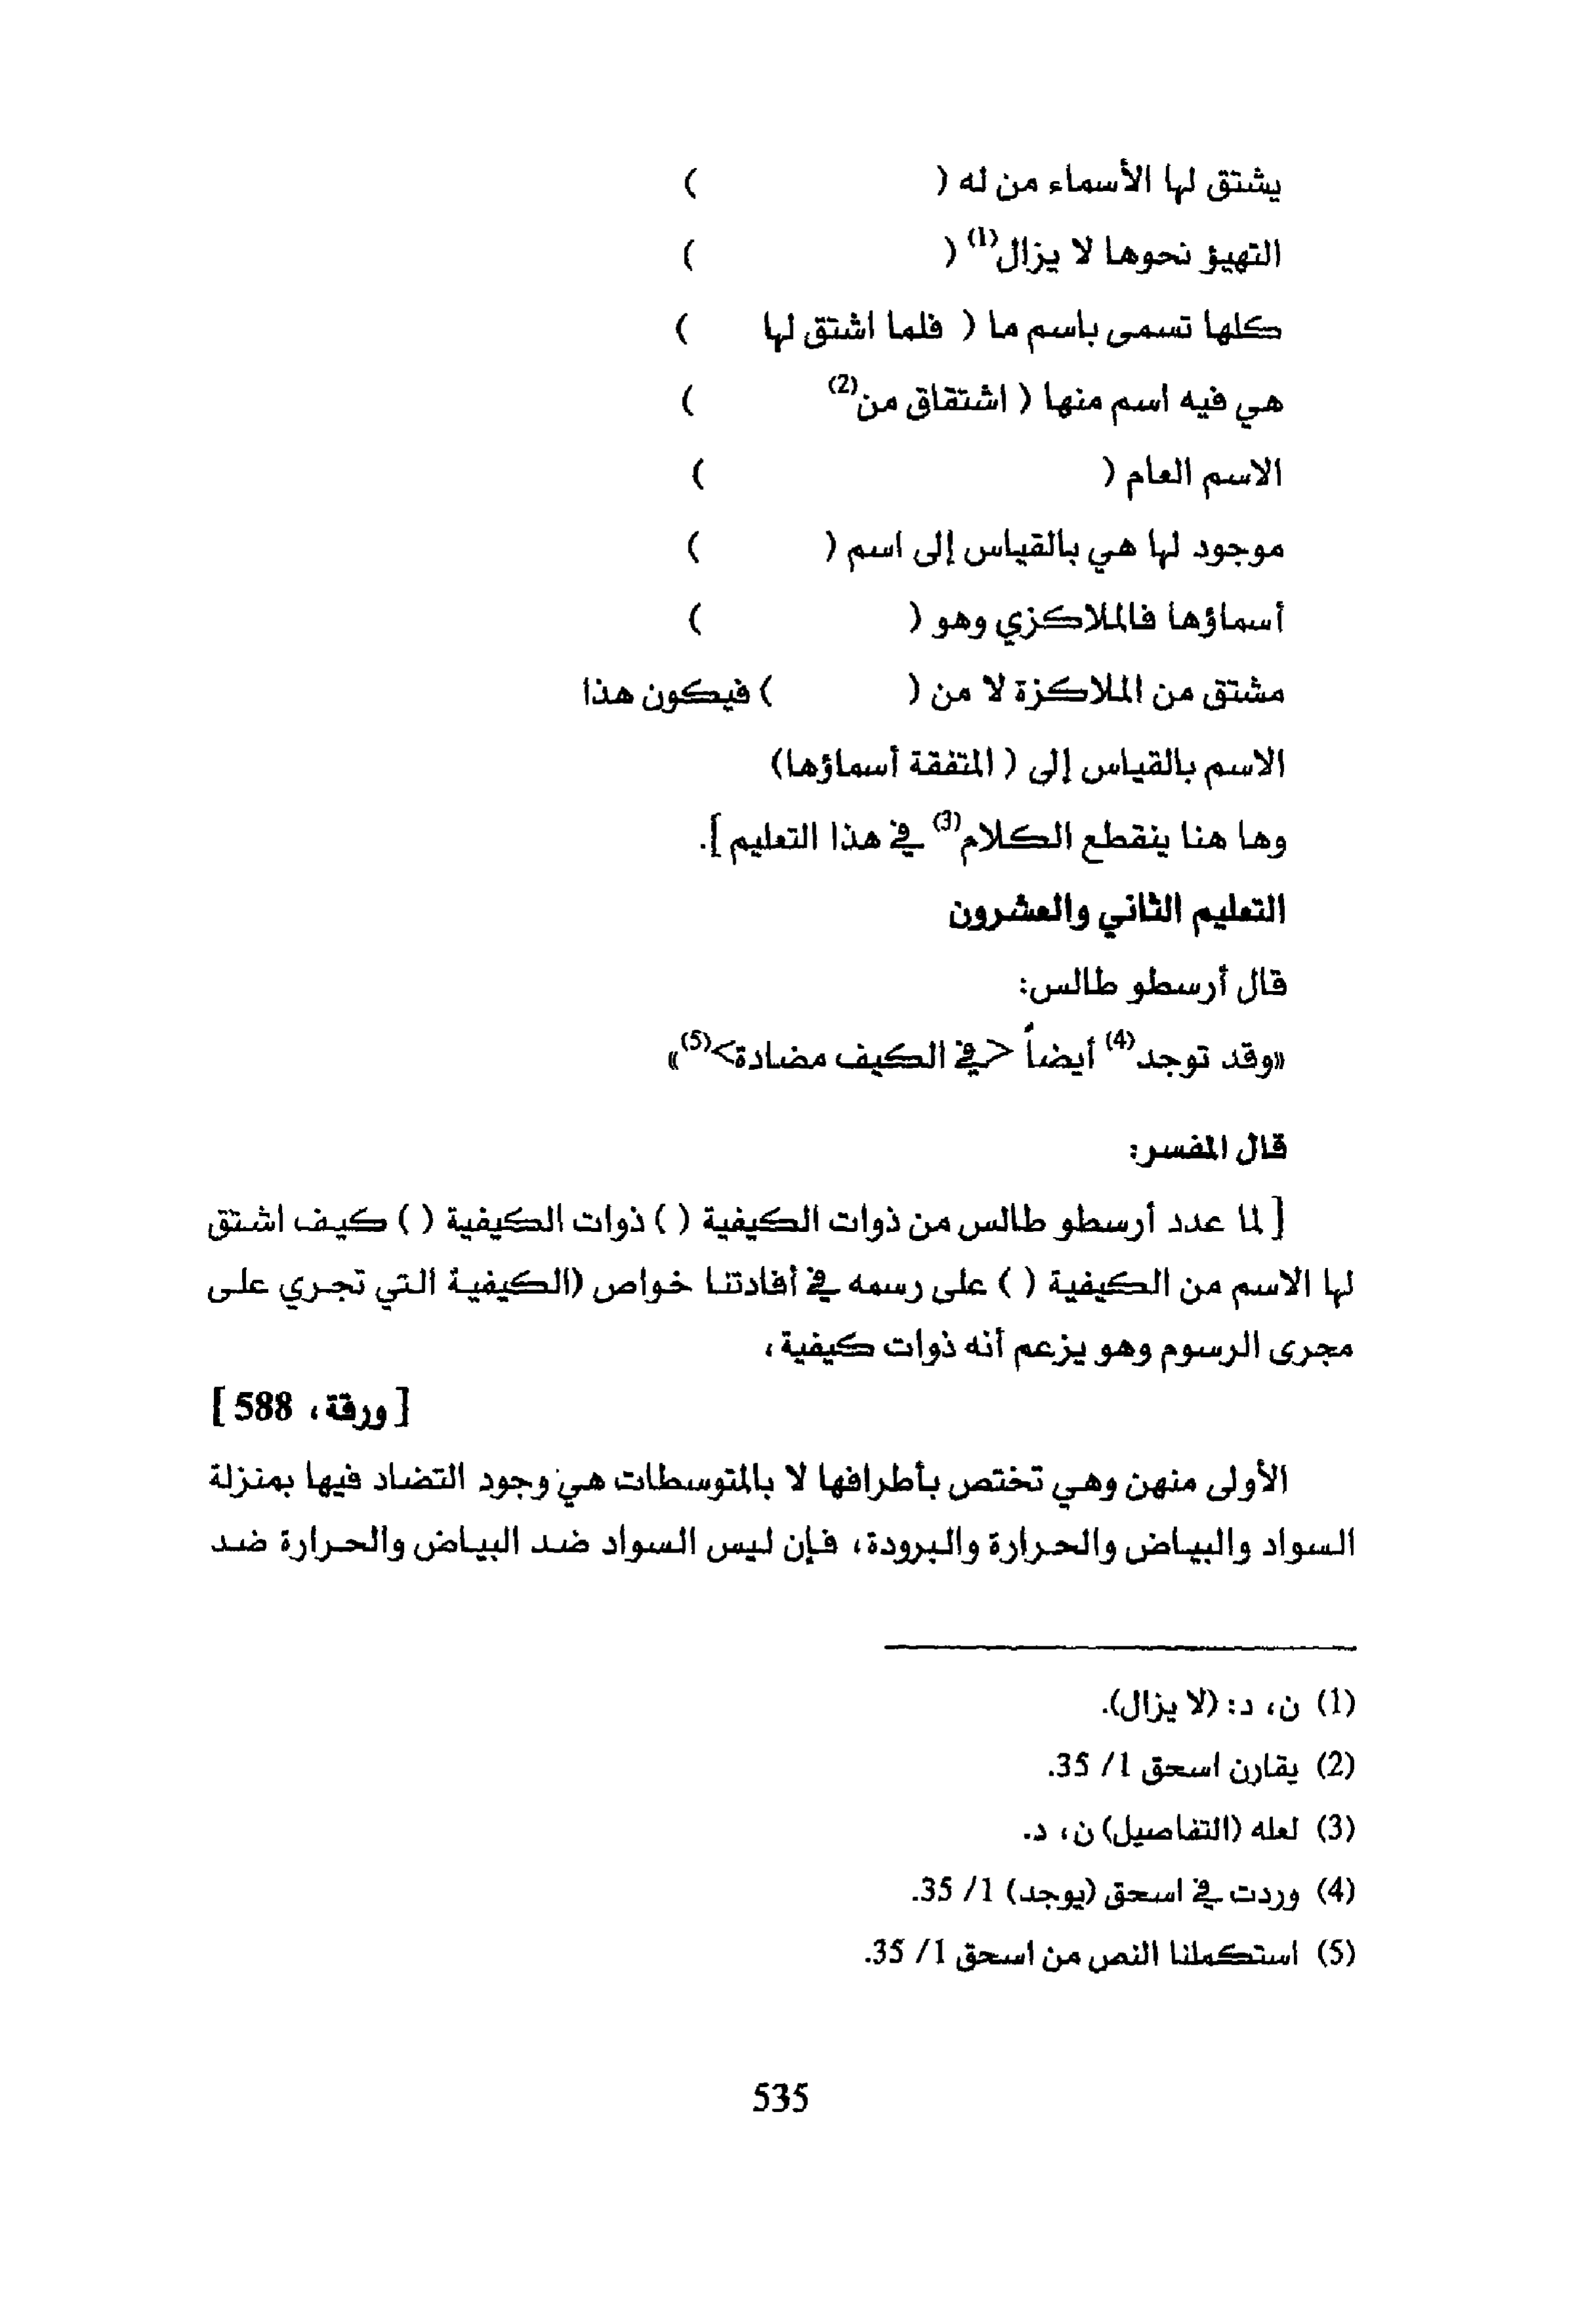 يشتق لها الأسماء من له ( )
التهيؤ نحوها لا يزال(1) ( )
كلها تسمى باسم ما ( فلما اشتق لها )
هي فيه اسم منها ( اشتقاق من(2) )
الاسم العام ( )
موجود لها هي بالقياس إلى اسم ( )
أسماؤها فالملاكزي وهو ( )
مشتق من الملاكزة لا من ( ) فيكون هذا
الاسم بالقياس إلى ( المتفقة أسماؤها)
وها هنا ينقطع الكلام(3) في هذا التعليم ].
التعليم الثاني والعشرون
قال أرسطو طالس:
«وقد توجد(4) أيضاً <في الكيف مضادة>(5)»
قال المفسر:
[ لما عدد أرسطو طالس من ذوات الكيفية ( ) ذوات الكيفية ( ) كيف اشتق
لها الاسم من الكيفية ( ) على رسمه في أفادتنا خواص (الكيفية التي تجري على
مجرى الرسوم وهو يزعم أنه ذوات كيفية ،
[ ورقة، 588 ]
الأولى منهن وهي تختص بأطرافها لا بالمتوسطات هي وجود التضاد فيها بمنزلة
السواد والبياض والحرارة والبرودة، فإن ليس السواد ضد البياض والحرارة ضد
(1) ن، د: (لا يزال).
(2) يقارن اسحق 1/ 35.
(3) لعله (التفاصيل) ن، د.
(4) وردت في اسحق (يوجد) 1/ 35.
(5) استكملنا النص من اسحق 1/ 35.
535